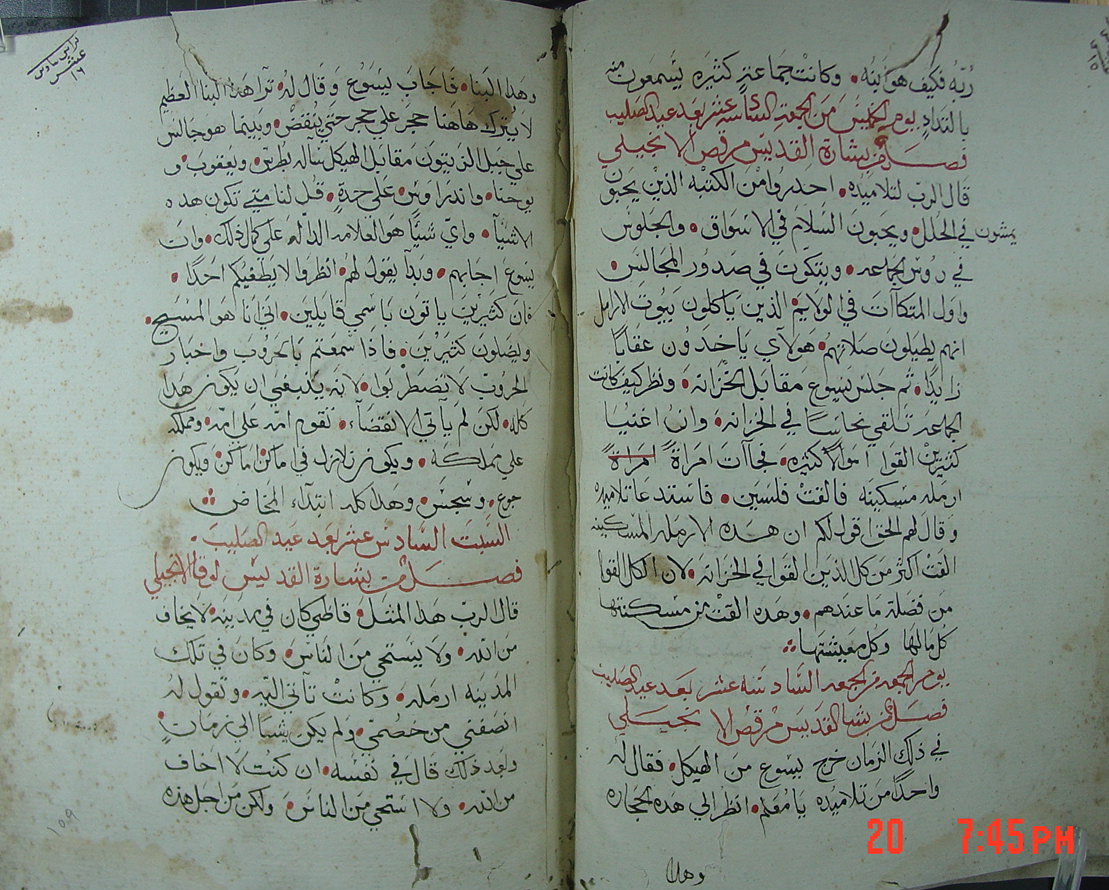 ربه فكيف هو ابنه. وكانت جماعة كثيره يسمعون منه
بالتداد يوم الخميس من الجمعة السادسه عشر بعد عيد الصليب
فصل من بشارة القديس مرقص الانجيلي
قال الرب لتلاميذه. احدروا من الكتبه الذين يحبون
يمشون في الحلل. ويحبون السلام في الاسواق. والجلوس
في روس الجماعه. ويتكون في صدور المجالس.
واول المتكاات في الولايم الذين ياكلون بيوت الارامل
انهم يطيلون صلاتهم. هولاي ياخدون عقابا
زايدا. ثم جلس يسوع مقابل الخزانه. ونظر كيف كانت
الجماعه تلقي نحاسا في الخزانه. وان اغنيا
كثيرين القوا اموالا كثيره. فجاات امراة امراة
ارمله مسكينه فالقت فلسين. فاستدعا تلاميده
وقال لهم الحق اقول لكم ان هذه الارمله المسكينه
القت اكثر من كل الذين القوا في الخزانه. لان الكل القوا
من فضلة ما عندهم. وهده القت من مسكنتها
كل مالها وكل معيشتها
يوم الجمعه من الجمعه السادسه عشر بعد عيد الصليب
فصل من بشارة القديس مرقص الانجيلي
في ذلك الزمان خرج يسوع من الهيكل. فقال له
واحدا من تلاميده يا معلم. انظر الي هده الحجاره
وهذا
20 7:45 PM
عشر
١٦
وهذا البنا. فاجاب يسوع وقال له. ترا هذا البنا العظيم
لا يترك هاهنا حجر علي حجر حتي ينقض. وبينما هو جالس
علي جبل الزيتون مقابل الهيكل ساله بطرس. ويعقوب. و
يوحنا. واندراوس. علي حدة. قل لنا متي تكون هده
الاشيآ. واي شيا هو العلامه الداله علي كل ذلك. وان
يسوع اجابهم. وبدا يقول لهم. انظروا لا يطغيكم احدا.
فان كثيرين ياتون باسمي قايلين. اني انا هو المسيح.
ويضلون كثيرين. فاذا سمعتم بالحروب واخبار
الحروب لا تضطربوا. لانه ينبغي ان يكون هدا
كله. لكن لم ياتي الانقضآء. تقوم امه علي امه. ومملكه
علي مملكه. ويكون زلازل في اماكن اماكن ويكون
جوع. وسجس. وهذا كله ابتداء المخاض
السبت السادس عشر بعد عيد الصليب.
فصل من بشارة القديس لوقا الانجيلي
قال الرب هذا المثل. قاضي كان في مدينه. لا يخاف
من الله. ولا يستحي من الناس. وكان في تلك
المدينه ارمله. وكانت تاتي اليه. وتقول له
انصفني من خصمي. ولم يكن يشا الي زمان.
وبعد ذلك قال في نفسه. ان كنت لا اخاف
من الله. ولا استحي من الناس. ولكن من اجل هذه